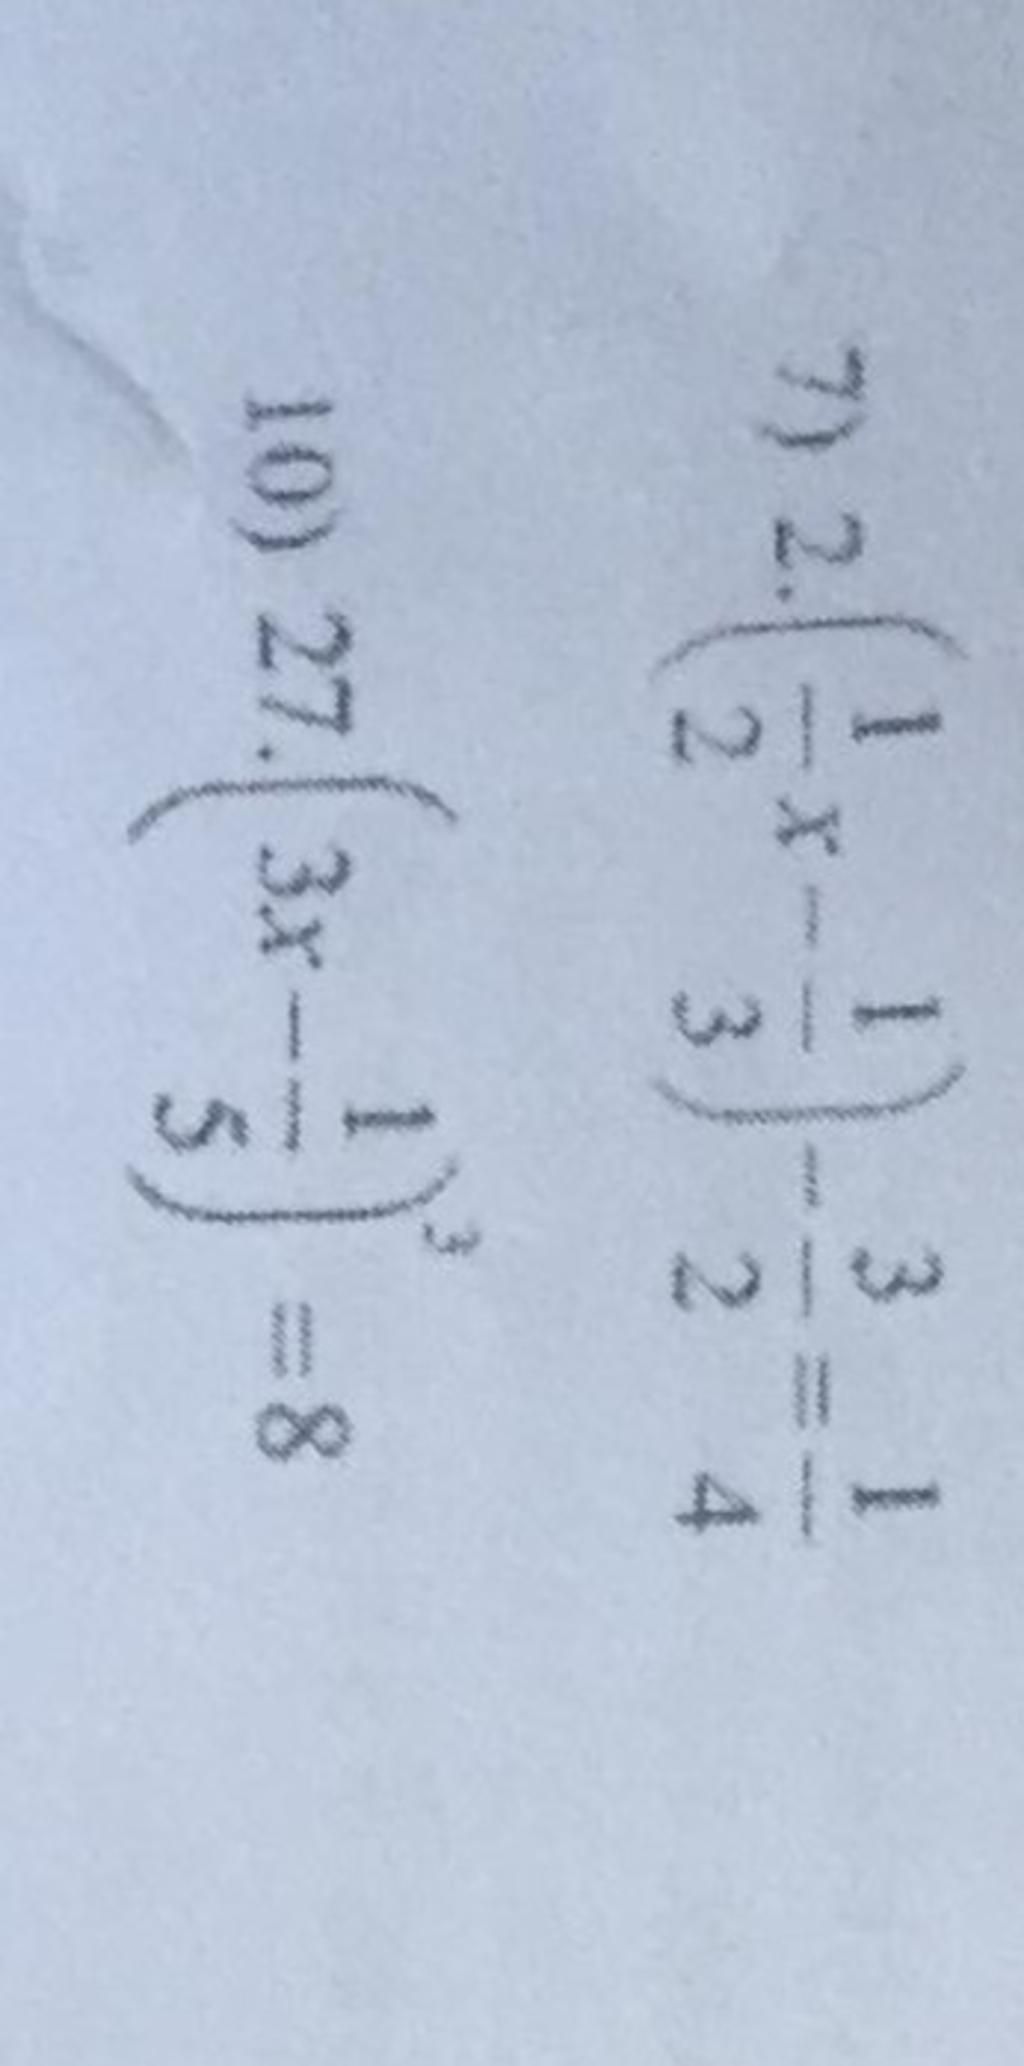 7) 2.(1/2 x − 1/3) − 3/2 = 1/4
10) 27.(3x − 1/5)³ = 8